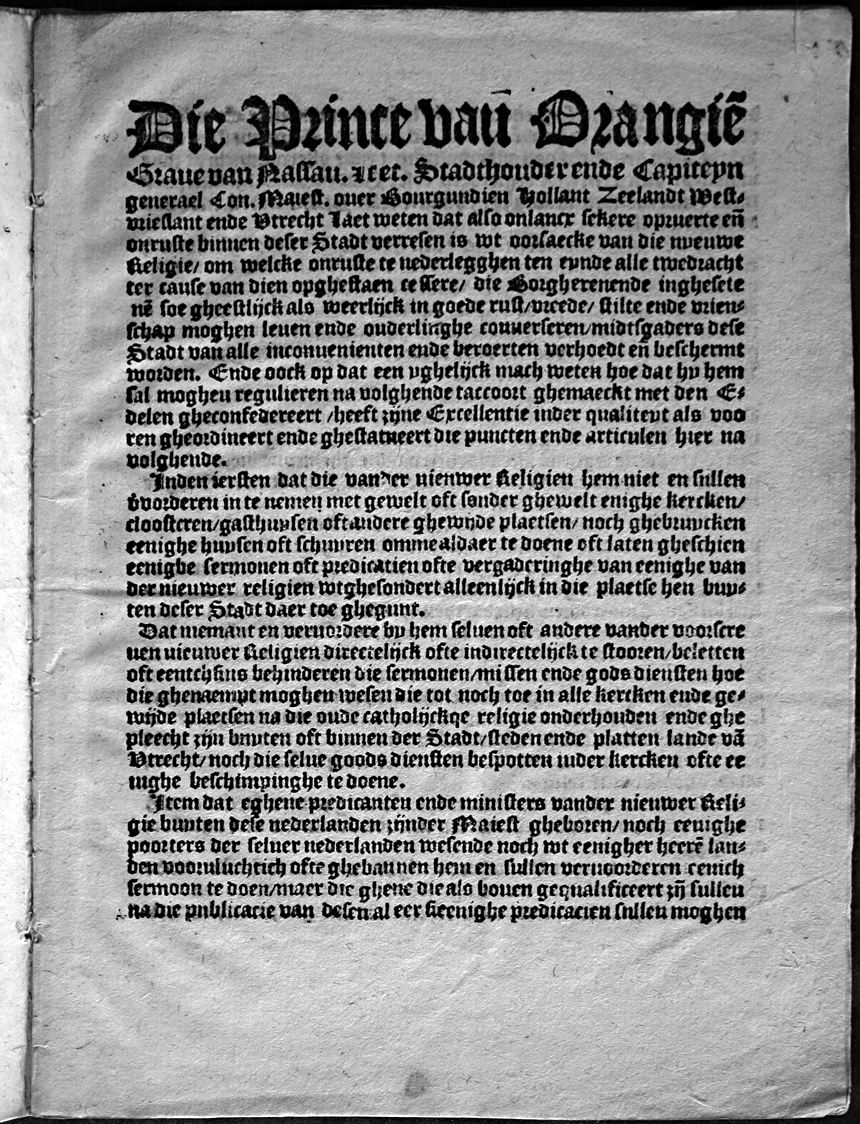 Die Prince van Orangiē
Graue van Nassau. ꝛcet. Stadthouder ende Capiteyn
generael Con. Maiest. ouer Bourgundien Hollant Zeelandt West⸗
vrieslant ende Vtrecht Laet weten dat also onlancx sekere opruerte eñ
onruste binnen deser Stadt verresen is wt oorsaecke van die nyeuwe
Religie/ om welcke onruste te nederlegghen ten eynde alle twedracht
ter cause van dien opghestaen cessere/ die Borgherenende inghesete
nē soe gheestlijck als weerlijck in goede rust/vreede/ stilte ende vrien⸗
schap moghen leuen ende onderlinghe conuerseren/midtsgaders dese
Stadt van alle inconuenienten ende beroerten verhoedt eñ beschermt
worden. Ende oock op dat een yghelijck mach weten hoe dat hy hem
sal moghen regulieren na volghende taccoort ghemaeckt met den E⸗
delen gheconfedereert /heeft zijne Excellentie inder qualiteyt als voo
ren gheordineert ende ghestatueert die puncten ende articulen hier na
volghende.
Inden iersten dat die vander nieuwer Religien hem niet en sullen
vvorderen in te nemen met gewelt oft sonder ghewelt enighe kercken/
cloosteren/gasthuysen oft andere ghewijde plaetsen/ noch ghebruycken
eenighe huysen oft schuyren omme aldaer te doene oft laten gheschien
eenighe sermonen oft predicatien ofte vergaderinghe van eenighe van
der nieuwer religien wtghesondert alleenlijck in die plaetse hen buy⸗
ten deser Stadt daer toe ghegunt.
Dat niemant en veruordere by hem seluen oft andere vander voorscre
uen nieuwer Religien directelijck ofte indirectelijck te stooren/beletten
oft eentchsins behinderen die sermonen/missen ende gods diensten hoe
die ghenaempt moghen wesen die tot noch toe in alle kercken ende ge⸗
wijde plaetsen na die oude catholijckqe religie onderhouden ende ghe
pleecht zijn buyten oft binnen der Stadt/steden ende platten lande vā
Vtrecht/ noch die selue goods diensten bespotten inder kercken ofte ee
nighe beschimpinghe te doene.
Item dat eghene predicanten ende ministers vander nieuwer Reli⸗
gie buyten dese nederlanden zijnder Maiest gheboren/ noch eenighe
poorters der seluer nederlanden wesende noch wt eenigher heerē lan⸗
den vooruluchtich ofte ghebannen hem en sullen veruoorderen eenich
sermoon te doen/maer die ghene die als bouen gequalificeert zijn sullen
na die publicatie van desen al eer keenighe predicatien sullen moghen